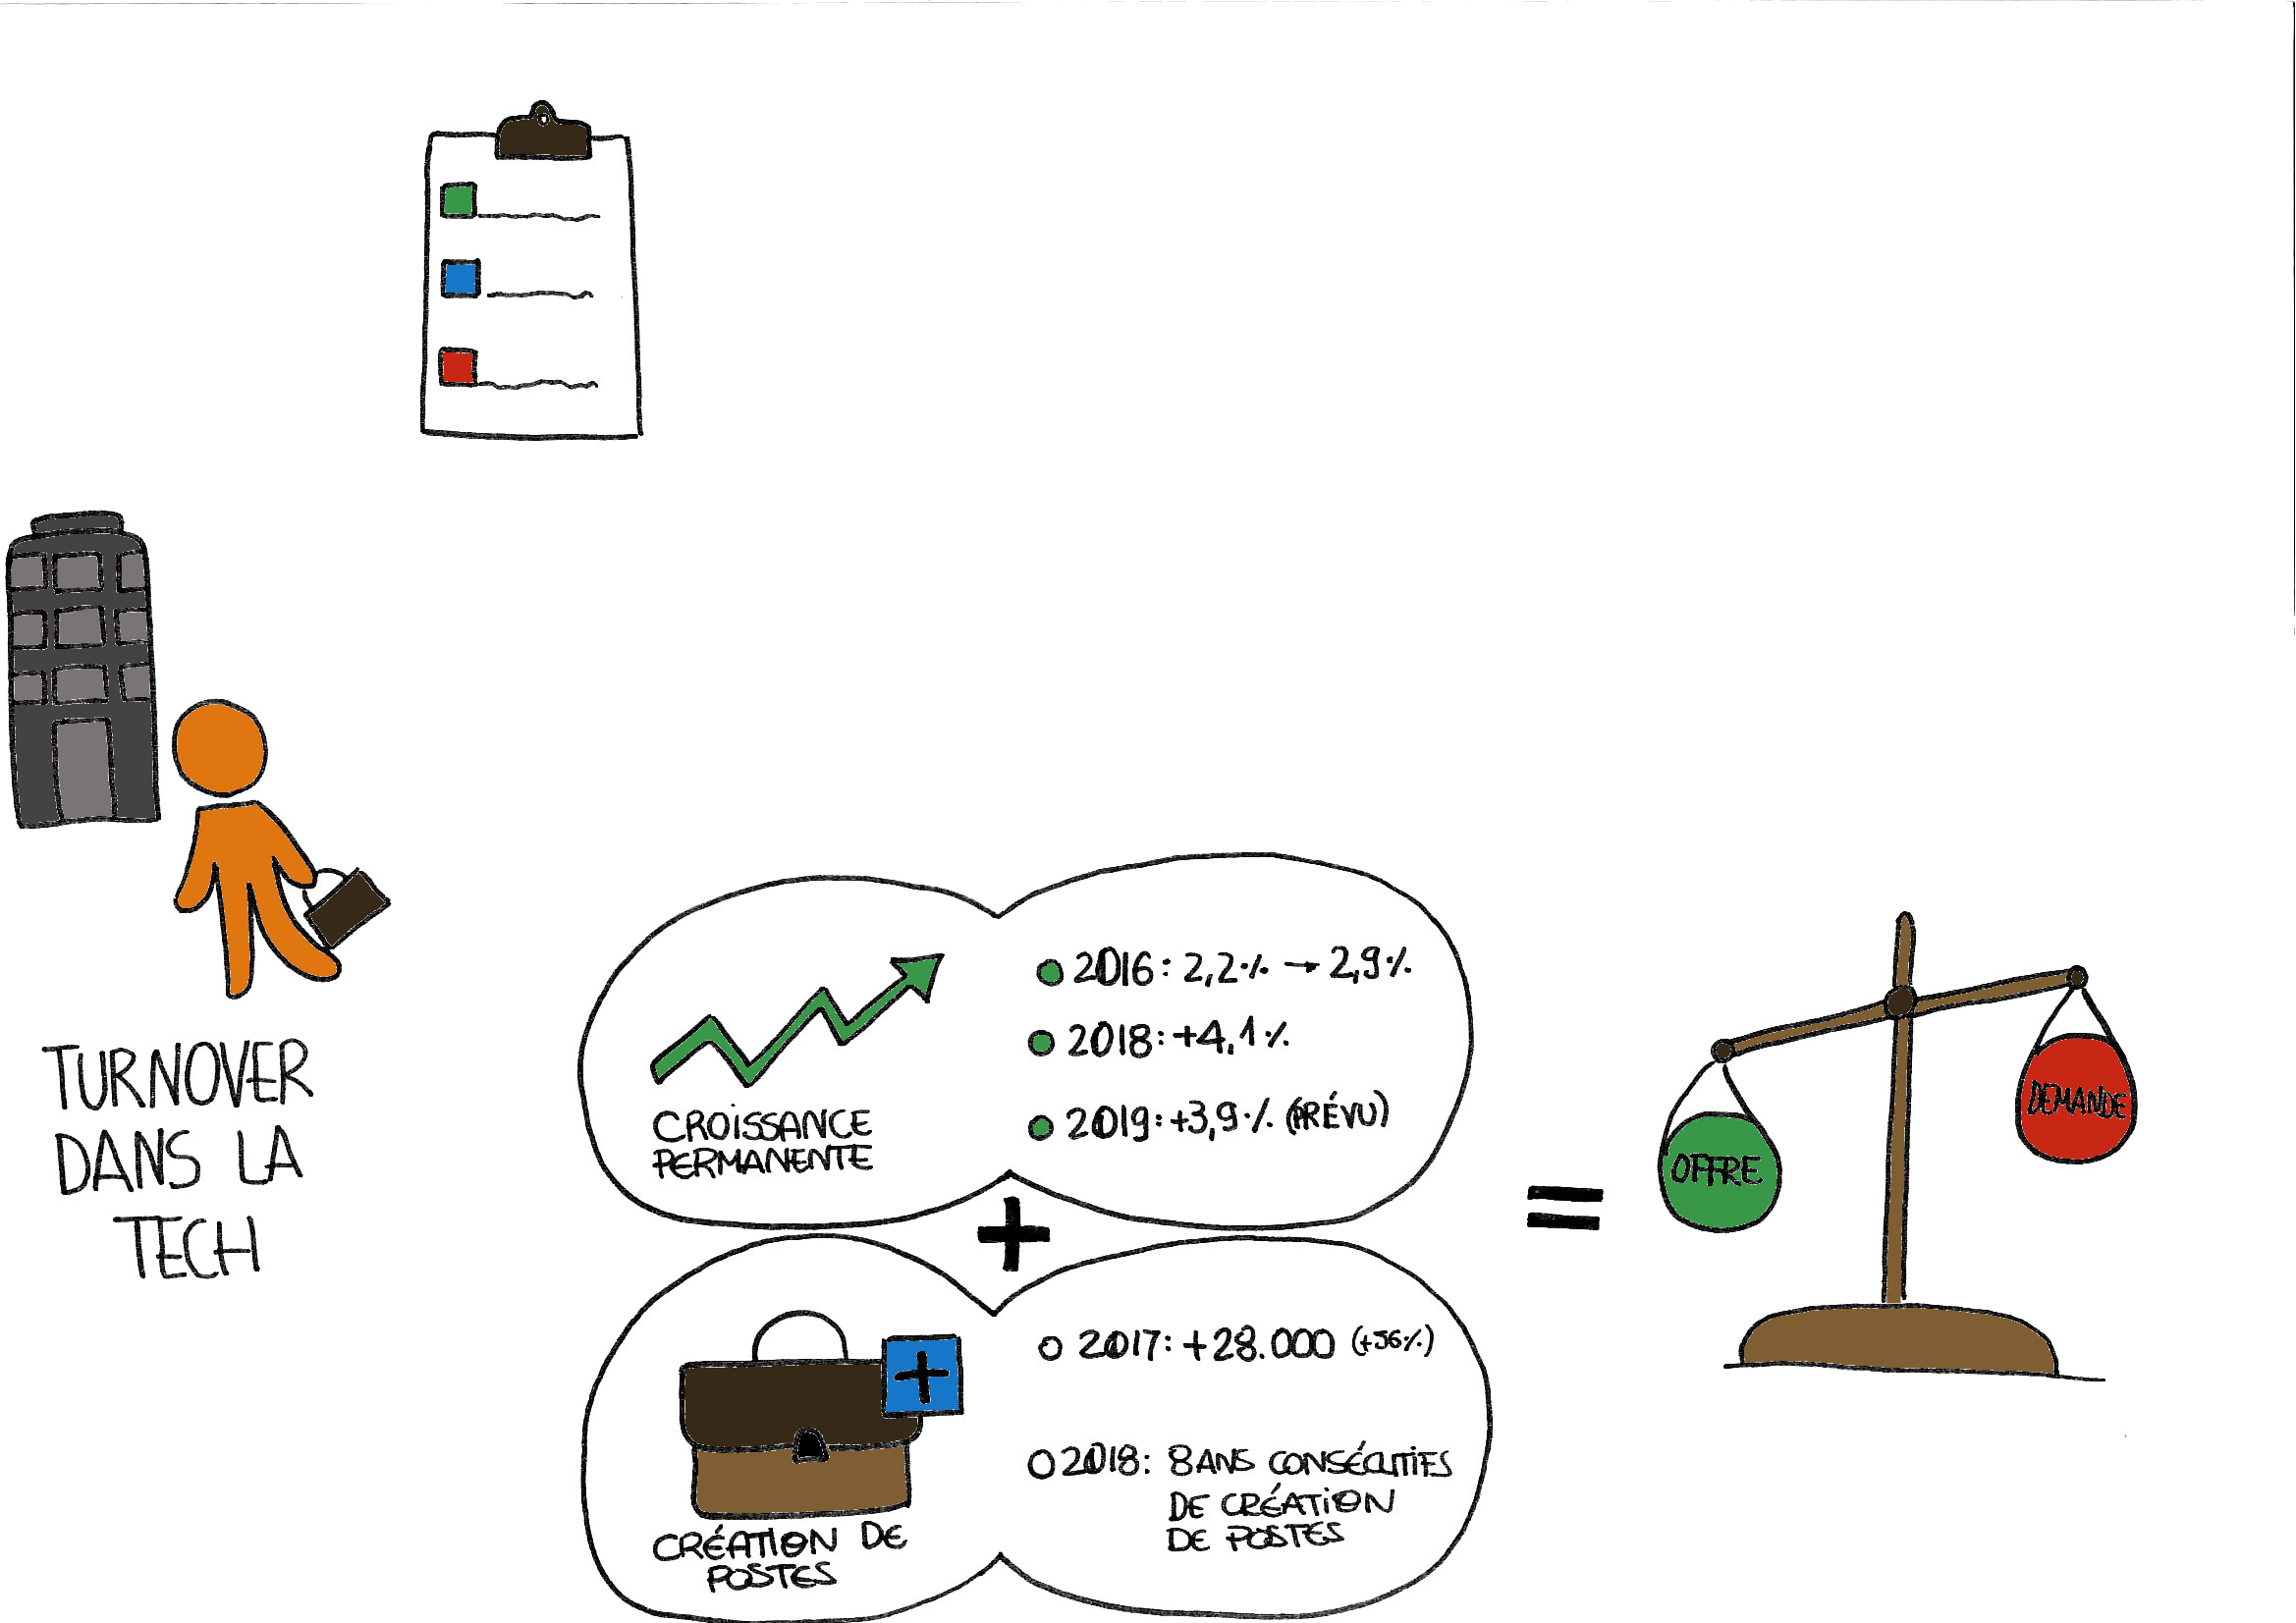 TURNOVER
DANS LA
TECH
CROISSANCE
PERMANENTE
2016: 2,2% → 2,9%
2018: +4,1%
2019: +3,9% (PRÉVU)
+
CRÉATION DE
POSTES
+
2017: +28.000 (+56%)
2018: 8 ANS CONSÉCUTIFS
DE CRÉATION
DE POSTES
=
OFFRE
DEMANDE